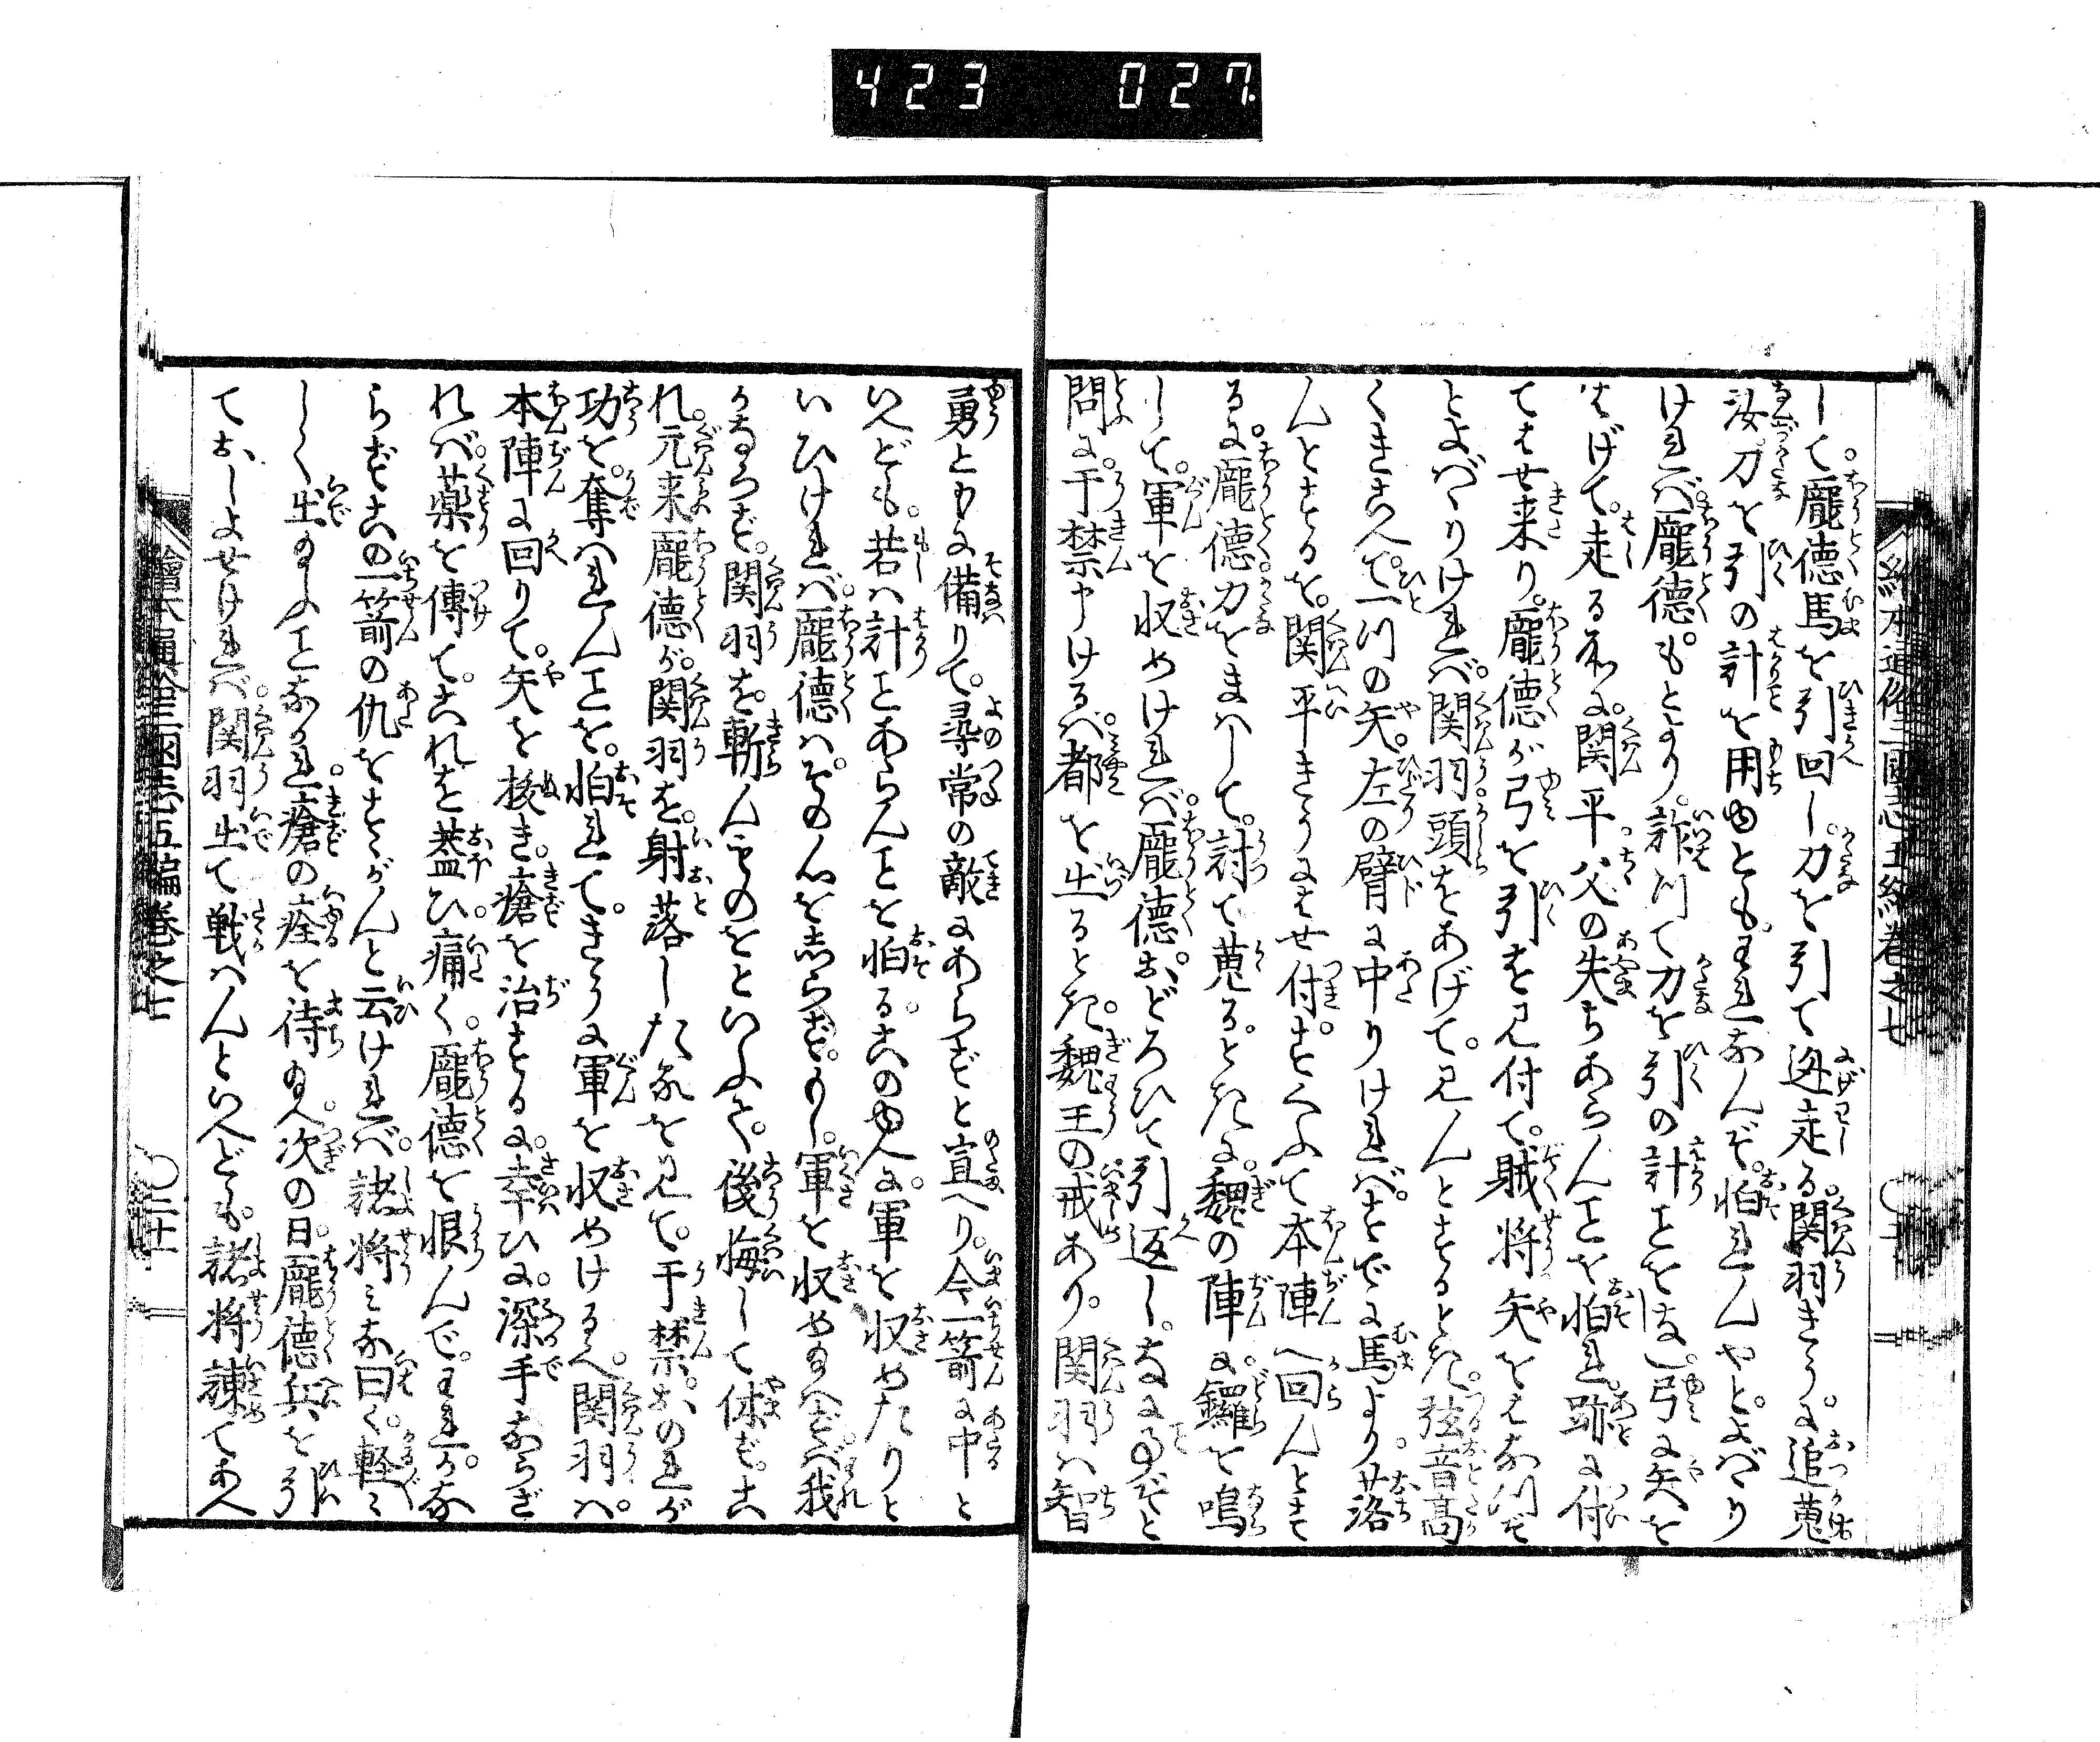 423 027.
して。龐徳馬を引回し。刀を引て迯走る。関羽きうに追蒐
汝刀を引の計を用ゆとも。われなんぞ。怕れんやと。よばゝり
ければ。龐徳。もとより。詐つて刀を引の計ごとをなし。弓に矢を
はげて。走る所に。関平。父の失ちあらんことを怕れ。跡に付
てはせ来り。龐徳が弓を引をみ付て。賊将矢をはなつぞ
とよばゝりければ。関羽。頭をあげて。みんとするとき。弦音高
くきこへて。一つの矢。左の臂に中りければ。すでに馬より。落
んとするを。関平きうにはせ付。すくふて本陣へ回んとす
るに。龐徳刀をまはして。討て蒐る。ときに。魏の陣に。鑼を鳴
して。軍を収めければ。龐徳。おどろひて引返し。なに事ぞと
問に。于禁申けるは。都を出るとき。魏王の戒あり。関羽は智
勇ともに備りて。尋常の敵にあらずと宣へり。今一箭に中と
いへども。若は計ごとあらんことを怕る。このゆへに。軍を収めたりと
いひければ。龐徳は。その心をしらず。もし。軍を収め給はずば。我
かならず。関羽を。斬んものをといふて。後悔して休ず。こ
れ。元来龐徳が。関羽を。射落したるをみて。于禁。おのれが
功を。奪はれんことを。怕れて。きうに軍を収めけるなり。関羽は。
本陣に回りて。矢を抜き。瘡を治するに。幸ひに。深手ならざ
れば。薬を傅て。これを蓋ひ。痛く。龐徳を恨んで。われかな
らずこの一箭の仇をすゝがんと云ければ。諸将みな曰く。軽々
しく出給ふことなかれ。瘡の痊を待給へ。次の日。龐徳兵を引
ておしよせければ。関羽出て戦はんといへども。諸将諌てあへ
繪本通俗三國志五編巻之七
〇二十一